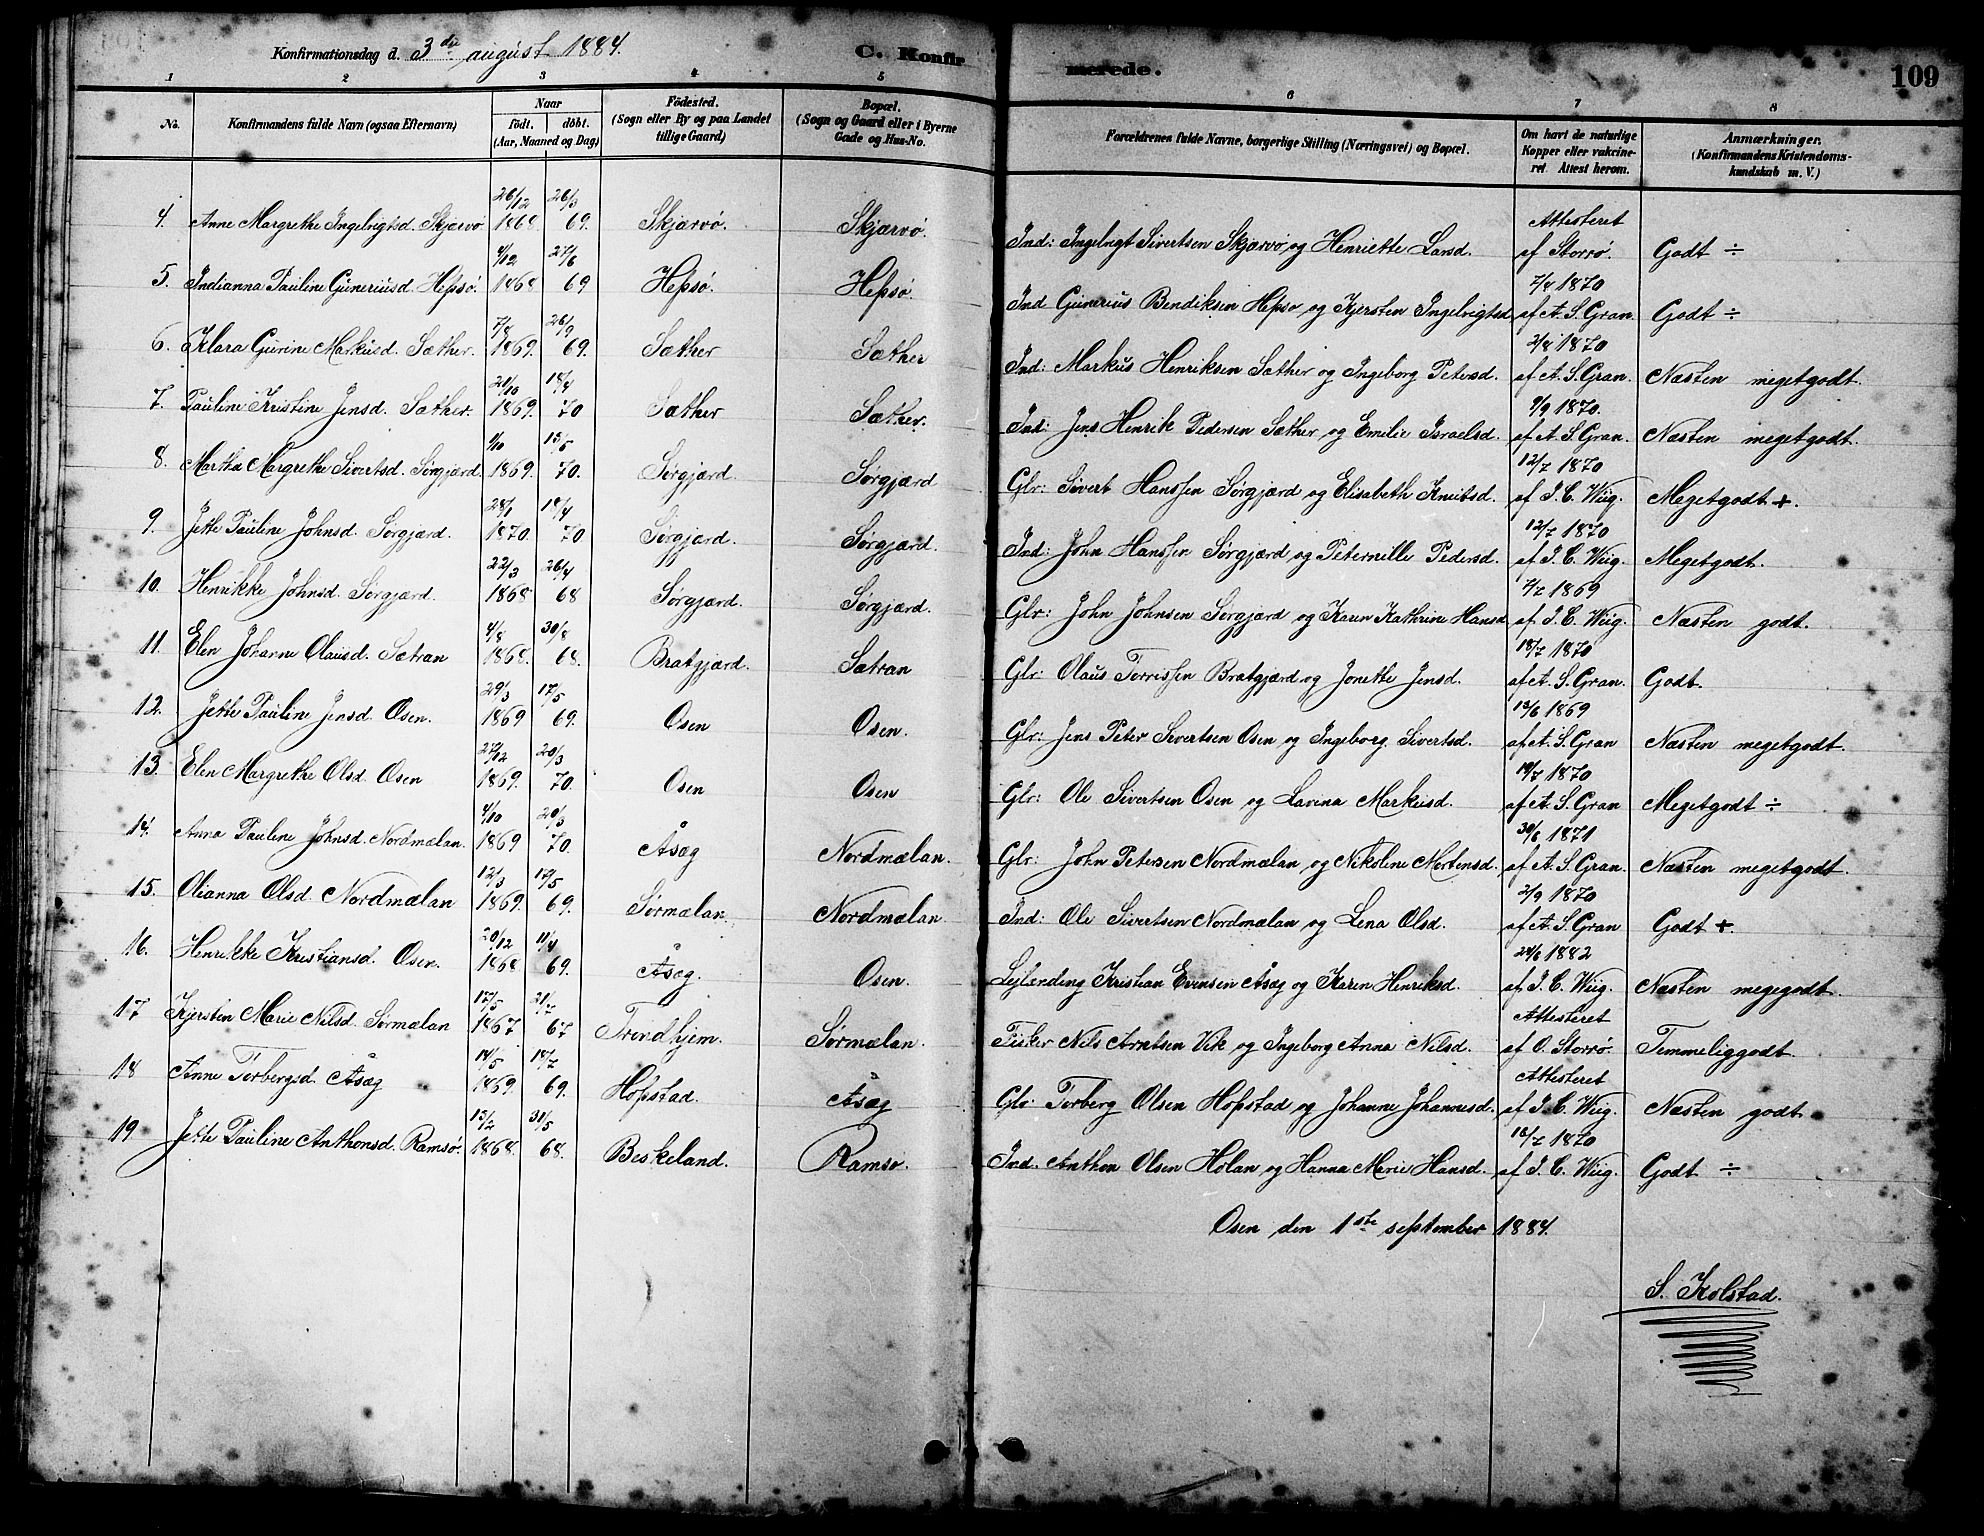 Konfirmationsdag d. 3die august 1884.
C. Konfirmerede.
109
1 2 3 4 5 6 7 8
No.
Konfirmandens fulde Navn (ogsaa Efternavn)
Naar
födt. döbt.
(Aar, Maaned og Dag)
Födested.
(Sogn eller By og paa Landet
tillige Gaard)
Bopæl.
(Sogn og Gaard eller i Byerne
Gade og Hus-No.
Forældrenes fulde Navne, borgerlige Stilling (Næringsvei) og Bopæl.
Om havt de naturlige
Kopper eller vakcine-
ret Attest herom.
Anmærkninger.
(Konfirmandens Kristendoms-
kundskab m. V.)
4. Anne Margrethe Ingelrigtsd. Skjærvö 26/12 1868. 26/3 69. Skjærvö. Skjærvö. Ind: Ingelrigt Sivertsen Skjærvö og Henriette Larsd. Attesteret af Storrö. Godt ÷
5. Indianna Pauline Guneriusd. Hepsö. 4/12 1868 27/6 69 Hepsö. Hepsö. Ind Gunerius Bendiksen Hepsö og Kjersten Ingelrigtsd 7/4 1870 af A. S. Gran. Godt ÷
6. Klara Gurine Markusd. Sæther. 7/8 1869. 26/9 69. Sæther Sæther Ind: Markus Henriksen Sæther og Ingeborg Petersd. 2/4 1870 af A. S. Gran. Næsten megetgodt.
7. Pauline Kristine Jensd. Sæther. 20/10 1869. 18/4 70 Sæther Sæther. Ind: Jens Henrik Pedersen Sæther og Emilie Israelsd. 9/9 1870. af A. S. Gran. Næsten megetgodt.
8. Martha Margrethe Sivertsd. Sörgjærd. 9/10 1869. 15/5 70. Sörgjærd. Sörgjærd Glr: Sivert Hanssen Sörgjærd og Elisabeth Knutsd. 12/7 1870 af J. C. Wiig. Megetgodt +.
9. Jette Pauline Johnsd. Sörgjærd. 28/1 1870. 18/4 70 Sörgjærd. Sörgjærd. Ind: John Hanssen Sörgjærd og Peternille Pedersd. 12/7 1870 af J. C. Wiig. Megetgodt.
10. Henrikke Johnsd. Sörgjærd. 22/3 1868 26/4 68 Sörgjærd. Sörgjærd. Glr: John Johnsen Sörgjærd og Karen Kathrine Hansd 7/7 1869 af J. C. Wiig. Næsten godt.
11. Elen Johanne Olausd. Sætran 4/8 1868. 30/8 68. Bratgjærd. Sætran Glr: Olaus Torrissen Bratgjærd og Jonette Jensd. 18/7 1870 af A. S. Gran. Godt.
12. Jette Pauline Jensd. Osen. 29/3 1869 17/5 69. Osen Osen. Glr: Jens Peter Sivertsen Osen og Ingeborg Sivertsd. 13/6 1869 af A. S. Gran Næsten megetgodt.
13. Elen Margrethe Olsd. Osen 27/12 1869. 20/3 70. Osen Osen Glr: Ole Sivertsen Osen og Lavina Markusd. 19/7 1870 af A. S. Gran Megetgodt ÷
14. Anna Pauline Johnsd. Nordmælan. 4/10 1869 20/3 70. Åsæg Nordmælan. Glr: John Petersen Nordmælan og Nikoline Mortensd. 30/6 1871 af A. S. Gran. Næsten megetgodt.
15. Olianna Olsd. Nordmælan 12/3 1869. 17/5 69. Sörmælan. Nordmælan. Ind: Ole Sivertsen Nordmælan og Lena Olsd. 2/9 1870 af A. S. Gran Godt +.
16. Henrikke Kristiansd. Osen. 20/12 1868 11/4 69. Åsæg. Osen. Leilending Kristian Evensen Åsæg og Karen Henriksd. 24/6 1882 af J. C. Wiig. Næsten megegodt.
17 Kjersten Marie Nilsd. Sörmælan 17/5 1867 21/7 67 Trondhjem. Sörmælan. Fisker Nils Arntsen Vik og Ingeborg Anna Nilsd. Attesteret af O. Storrö. Temmeliggodt.
18 Anne Torbergsd. Åsæg 14/5 1869. 18/7 69. Hopstad. Åsæg Glr. Torberg Olsen Hopstad og Johanne Johannesd. Attesteret af J. C. Wiig. Næsten godt.
19 Jette Pauline Anthonsd. Ramsö. 13/2 1868. 31/5 68. Beskeland. Ramsö. Ind. Anthon Olsen Holan og Hanna Marie Hansd. 18/7 1870 af J. C. Wiig. Godt ÷
Osen den 1ste september 1884.
S. Kolstad.